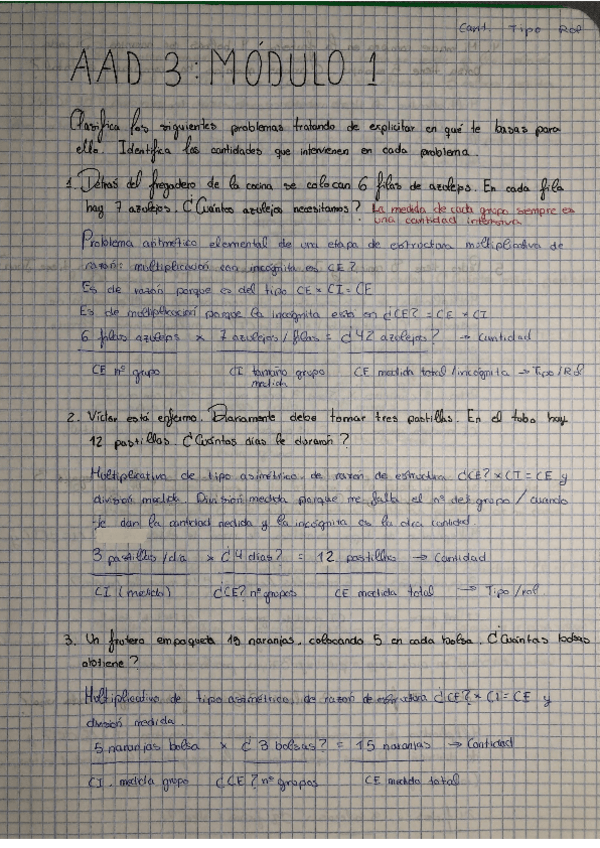 Cant. Tipo Rol
AAD 3: MÓDULO 1
Clasifica los siguientes problemas tratando de explicitar en qué te basas para
ello. Identifica las cantidades que intervienen en cada problema.
1. Detrás del fregadero de la cocina se colocan 6 filas de azulejos. En cada fila
hay 7 azulejos. ¿Cuántos azulejos necesitamos? La medida de cada grupo siempre es
una cantidad intensiva
Problema aritmético elemental de una etapa de estructura multiplicativa de
razón: multiplicación con incógnita es CE?
Es de razón porque es del tipo CE × CI = CE
Es de multiplicación porque la incógnita está en ¿CE? = CE × CI
6 filas azulejos × 7 azulejos / filas = ¿42 azulejos? → Cantidad
CE nº grupo CI tamaño grupo CE medida total / incógnita → Tipo / Rol
medida
2. Víctor está enfermo. Diariamente debe tomar tres pastillas. En el tubo hay
12 pastillas. ¿Cuántos días le durarán?
Multiplicativa de tipo asimétrico de razón de estructura ¿CE? × CI = CE y
división medida. División medida porque me falta el nº del grupo / cuando
te dan la cantidad medida y la incógnita es la otra cantidad.
3 pastillas / día × ¿4 días? = 12 pastillas → Cantidad
CI (medida) ¿CE? nº grupos CE medida total → Tipo / rol.
3. Un frutero empaqueta 15 naranjas, colocando 5 en cada bolsa. ¿Cuántas bolsas
obtiene?
Multiplicativa de tipo asimétrico, de razón de estructura ¿CE? × CI = CE y
división medida.
5 naranjas bolsa × ¿3 bolsas? = 15 naranjas → Cantidad
CI. medida grupo ¿CE? nº grupos CE medida total.